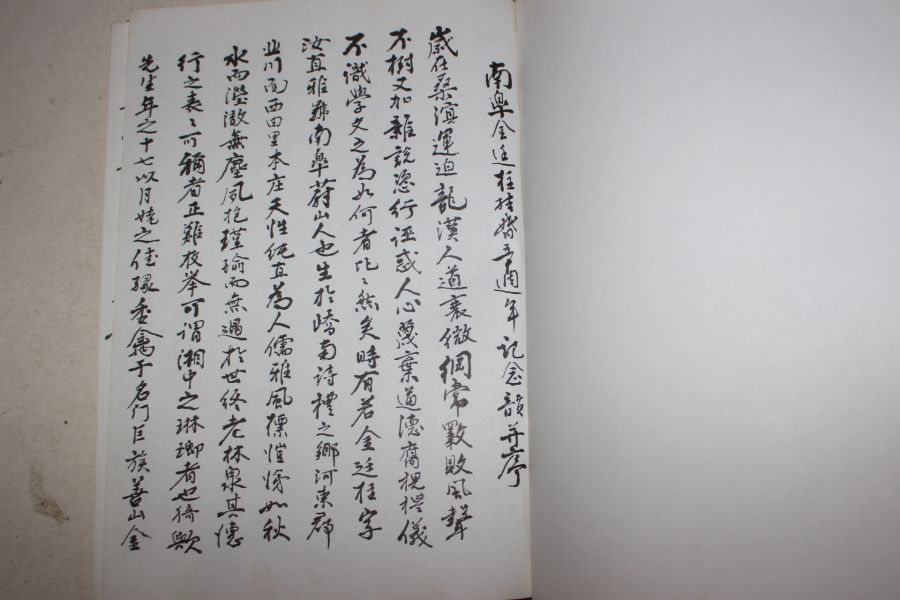 南皐金廷柱結婚五週年記念韻并序
歲在桑溟運迫龍漢人道衰微綱常斁敗風聲
不樹又加雜說恣行誣惑人心幾棄道德腐視禮儀
不識學文之為如何者比〻然矣時有若金廷柱字
汝直雅號南皐蔚山人也生於嶠南詩禮之鄉河東郡
川面西田里本庄天性純直為人儒雅風標愷悌如秋
水而瀅澈無塵夙抱瑾瑜而無過於世終老林泉其德
行之表〻可稱者正難枚举可謂湘中之琳瑯者也猗歟
先生年之十七以月姥之佳緣委禽于名門巨族善山金